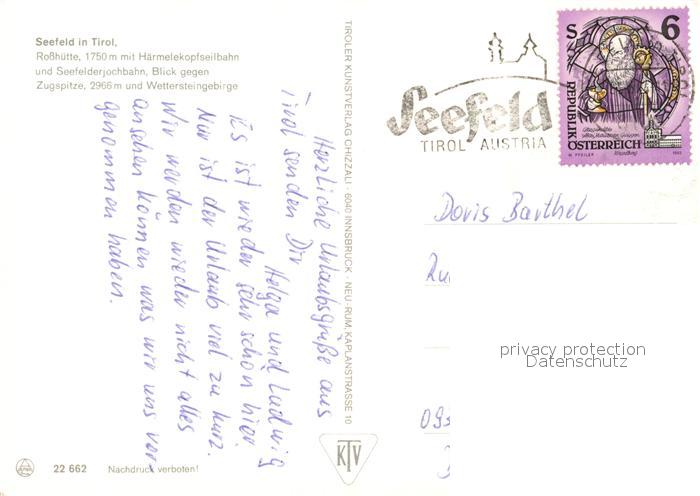 Seefeld in Tirol,
Roßhütte, 1750 m mit Härmelekopfseilbahn
und Seefelderjochbahn, Blick gegen
Zugspitze, 2966 m und Wettersteingebirge
Herzliche Urlaubsgrüße aus
Tirol senden Dir
Helga und Ludwig
Es ist wieder sehr schön hier.
Nur ist der Urlaub viel zu kurz.
Wir werden wieder nicht alles
ansehen können was wir uns vor-
genommen haben.
22 662 Nachdruck verboten!
TIROLER KUNSTVERLAG CHIZZALI · 6040 INNSBRUCK · NEU-RUM, KAPLANSTRASSE 10
KTV
Seefeld
TIROL AUSTRIA
S 6
REPUBLIK
ÖSTERREICH
Doris Barthel
093
privacy protection
Datenschutz